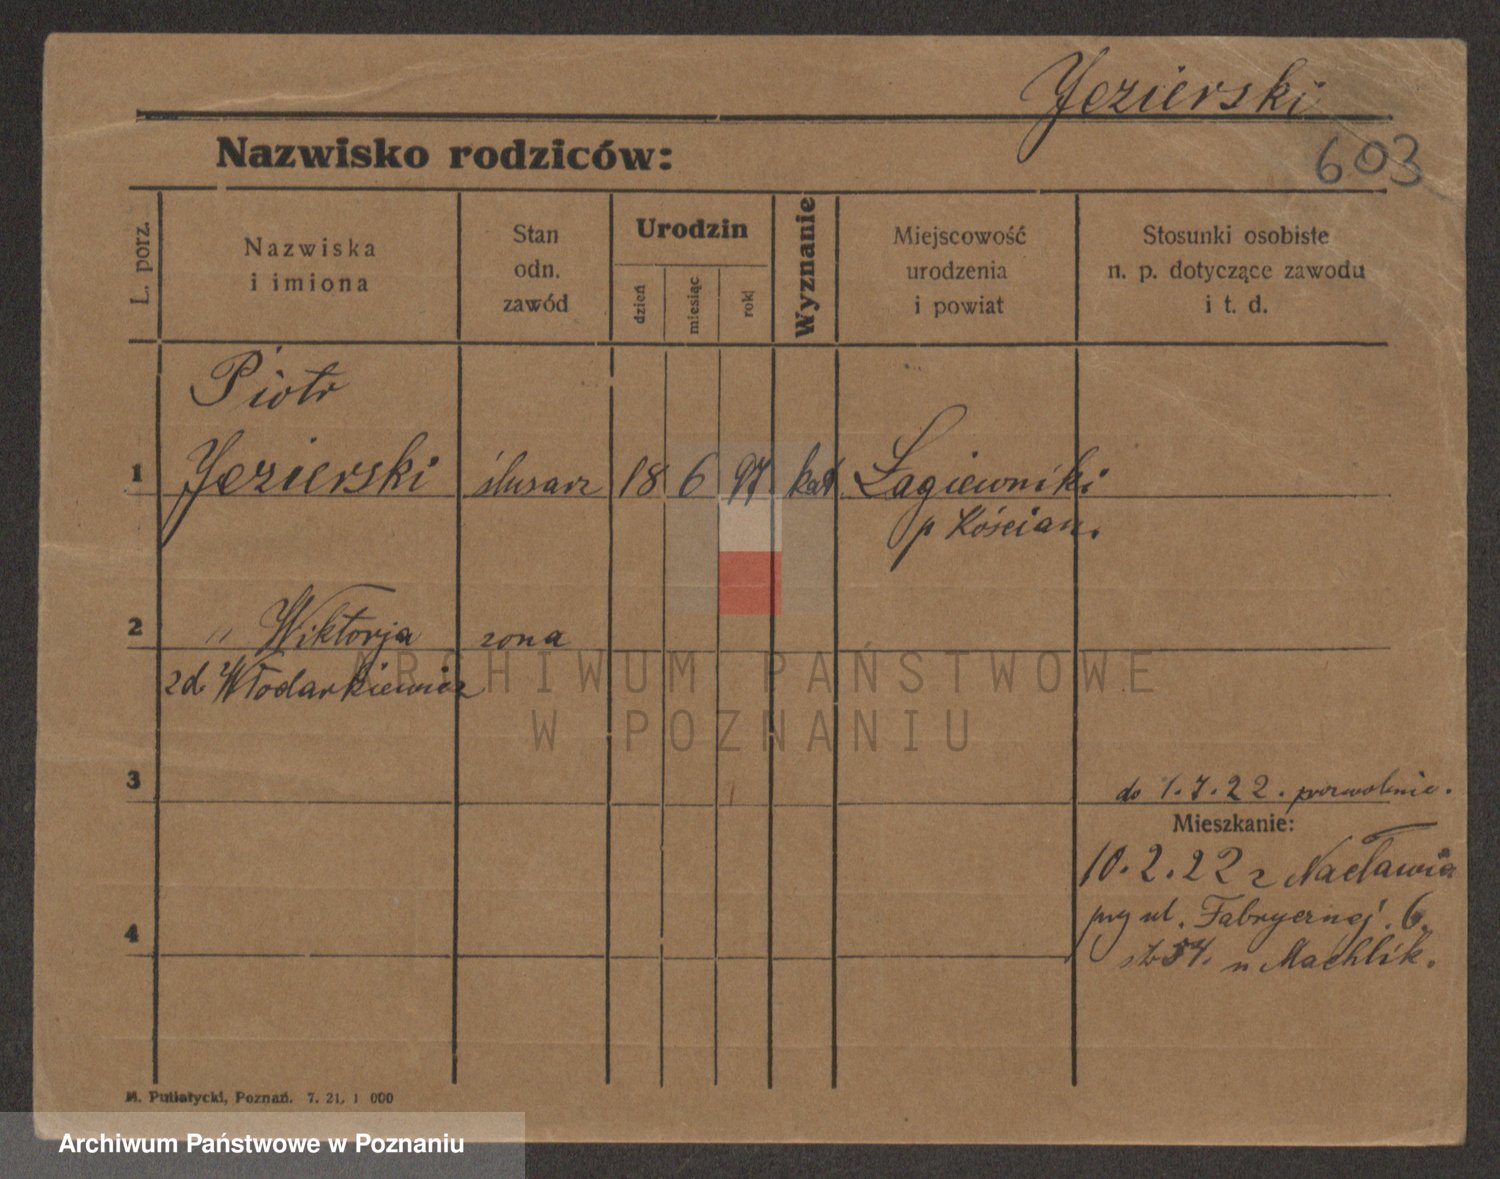 Jezierski
603
Nazwisko rodziców:
L. porz.
Nazwiska
i imiona
Stan
odn.
zawód
Urodzin
dzień
miesiąc
rok
Wyznanie
Miejscowość
urodzenia
i powiat
Stosunki osobiste
n. p. dotyczące zawodu
i t. d.
Piotr
1 Jezierski ślusarz 18 6 97 kat Łagiewniki
p Kościan.
2 " Wiktorja żona
zd. Włodarkiewicz
3
do 1.7.22. pozwolenie.
Mieszkanie:
10.2.22 z Nacławia
przy ul. Fabrycznej 6.
4
u Machlik.
M. Putiatycki, Poznań. 7. 21. 1 000
ARCHIWUM PAŃSTWOWE
W POZNANIU
Archiwum Państwowe w Poznaniu